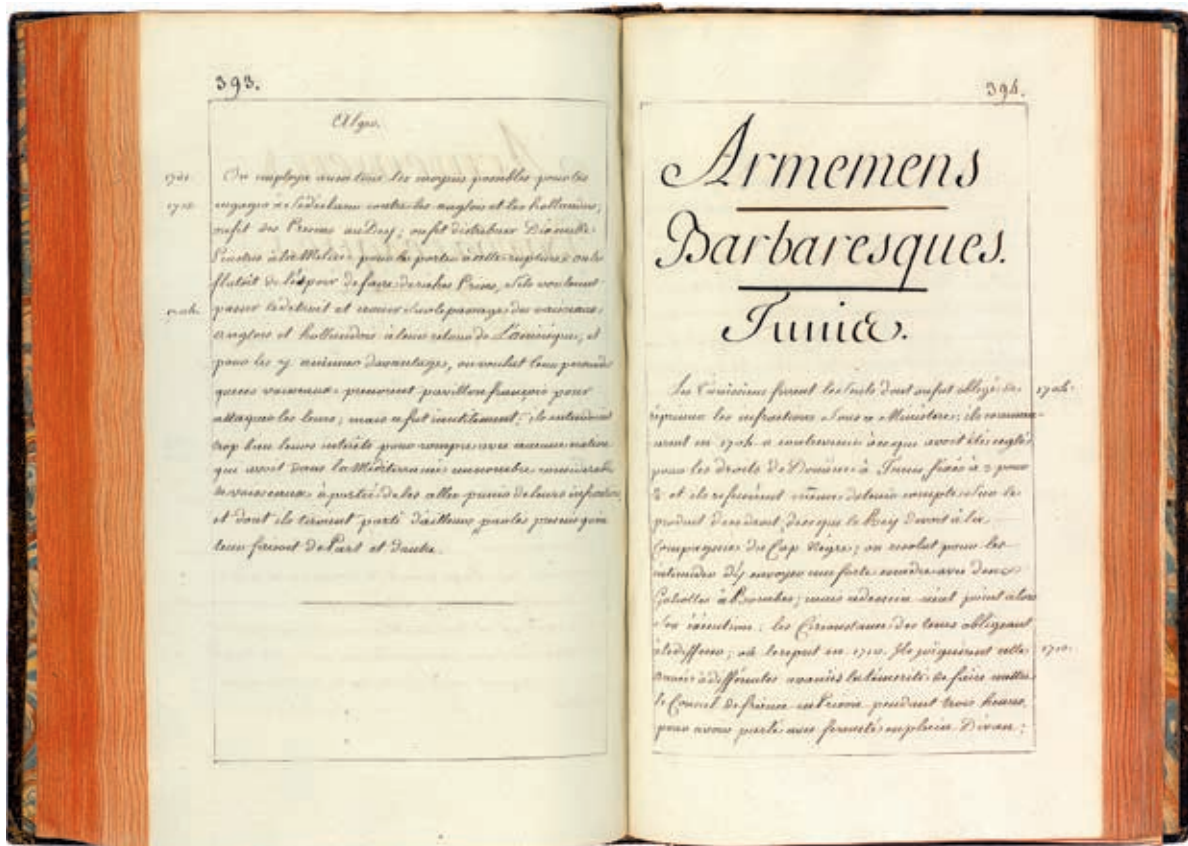 393.
Alger.
1701. On employa aussi tous les moyens possibles pour les
1702. engager à se déclarer contre les anglois et les hollandois,
on fit des Presens au Dey; on fit distribuer Dix mille
Piastres à la Milice pour la porter à cette rupture; on les
flatoit de l'éspoir de faire de riches Prises, s'ils vouloient
1704. passer le détroit et croiser sur le passage des vaisseaux
anglois et hollandois à leur retour de L'amérique, et
pour les y animer davantage, on voulut leur persuader
que ces vaisseaux prenoient pavillon françois pour
attaquer les leurs; mais ce fut inutilement; ils entendoient
trop bien leurs intérêts pour rompre avec aucune nation
qui avoit dans la Méditerranée un nombre considerable
de vaisseaux à portée de les aller punir de leurs infractions,
et dont ils tiroient parti d'ailleurs par les presens qu'on
leur faisoit de Part et d'autre.
394.
Armemens
Barbaresques.
Tunis.
Les Tunisiens furent les seuls dont on fut obligé de 1704.
réprimer les infractions sous ce Ministere; ils commen-
cerent en 1704 à contrevenir à ce qui avoit été reglé
pour les droits de Doüane à Tunis, fixés à 3 pour
% et ils refuserent même de tenir compte sur le
produit de ce droit, de ce que le Bey devoit à la
Compagnie du Cap Négre; on resolut pour les
intimider d'y envoyer une forte escadre avec deux
Galiottes à Bombes; mais ce dessein n'eut point alors
son exécution; les Circonstances des tems obligeant
à le differer; on le reprit en 1710. Ils joignirent cette 1710.
année à différentes avanies la témerité de faire mettre
le Consul de france en Prison pendant trois heures,
pour avoir parlé avec fermeté en plein Divan;